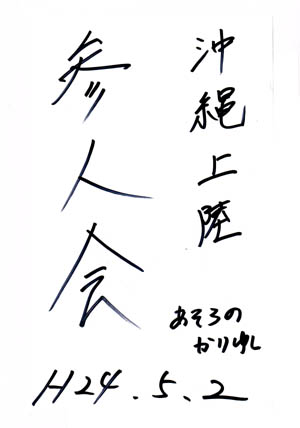 沖縄上陸
参人会
あそろの
かりゆし
H24.5.2